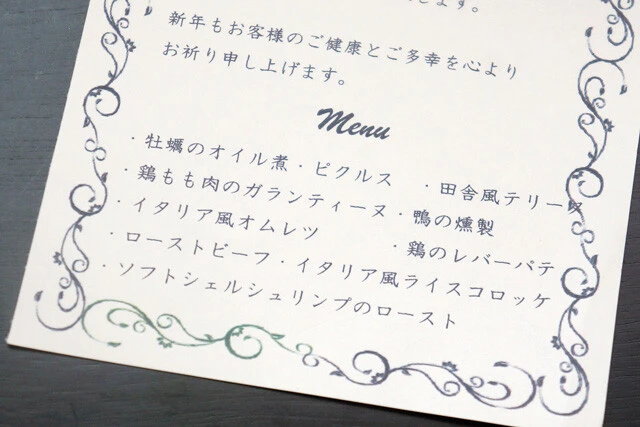 します。
新年もお客様のご健康とご多幸を心より
お祈り申し上げます。
Menu
・牡蠣のオイル煮・ピクルス ・田舎風テリーヌ
・鶏もも肉のガランティーヌ・鴨の燻製
・イタリア風オムレツ ・鶏のレバーパテ
・ローストビーフ・イタリア風ライスコロッケ
・ソフトシェルシュリンプのロースト